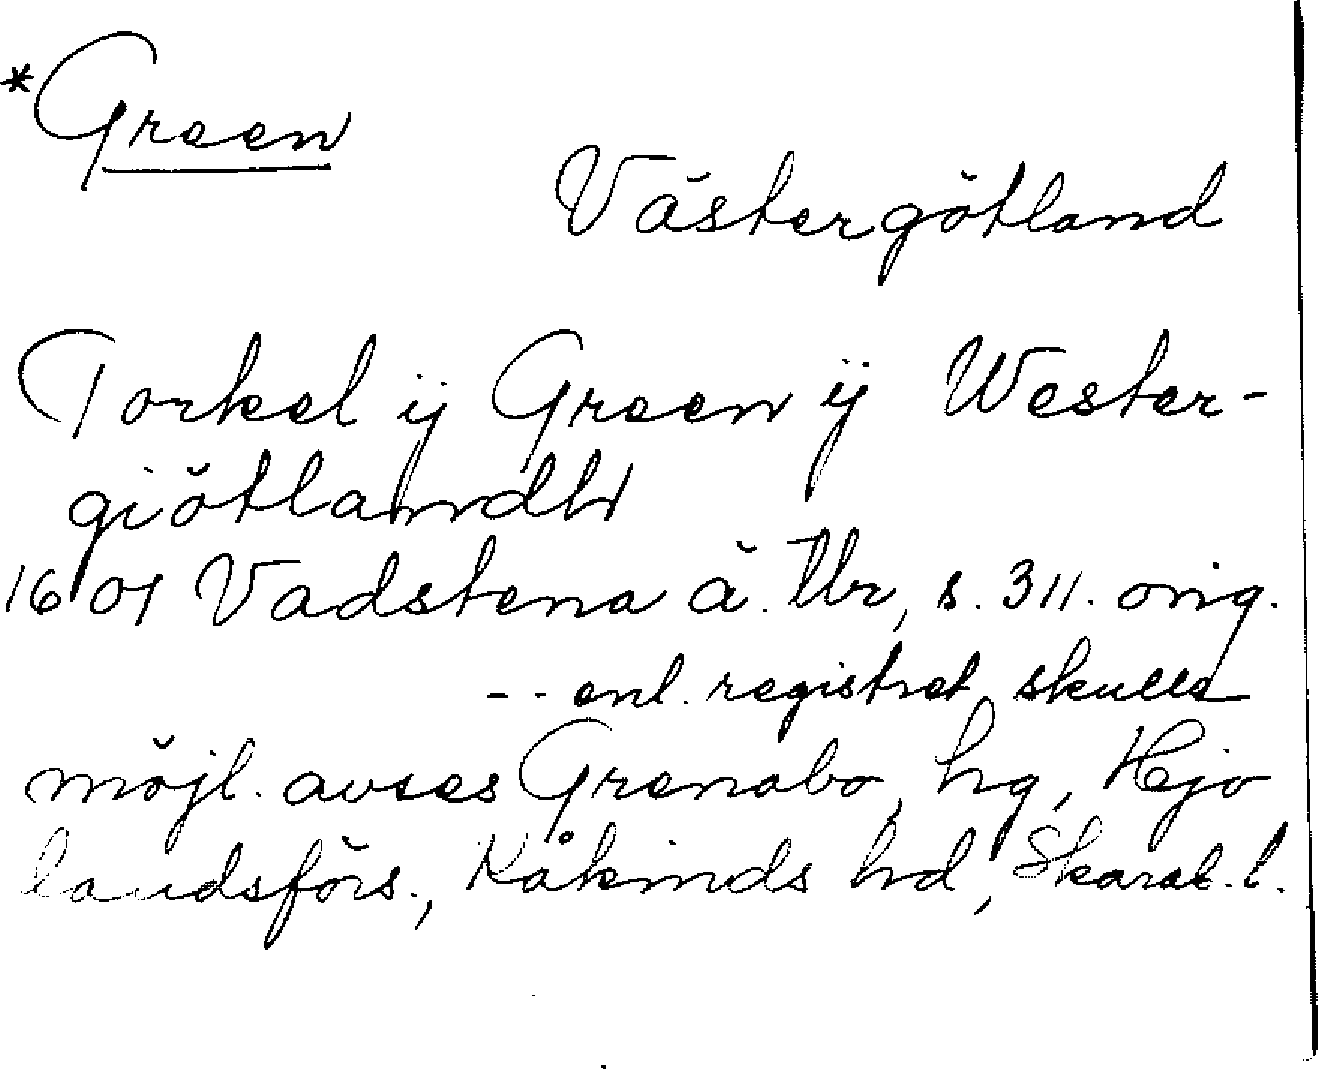 *Green
Västergötland
Torkel ij Green ij Wester-
giötlandh
1601 Vadstena ä. Ur, s. 311. orig.
-- enl. registret skulle
möjl. avses Grenabo, hg, Hjo
landsförs., Kåkinds hd, Skarab. l.